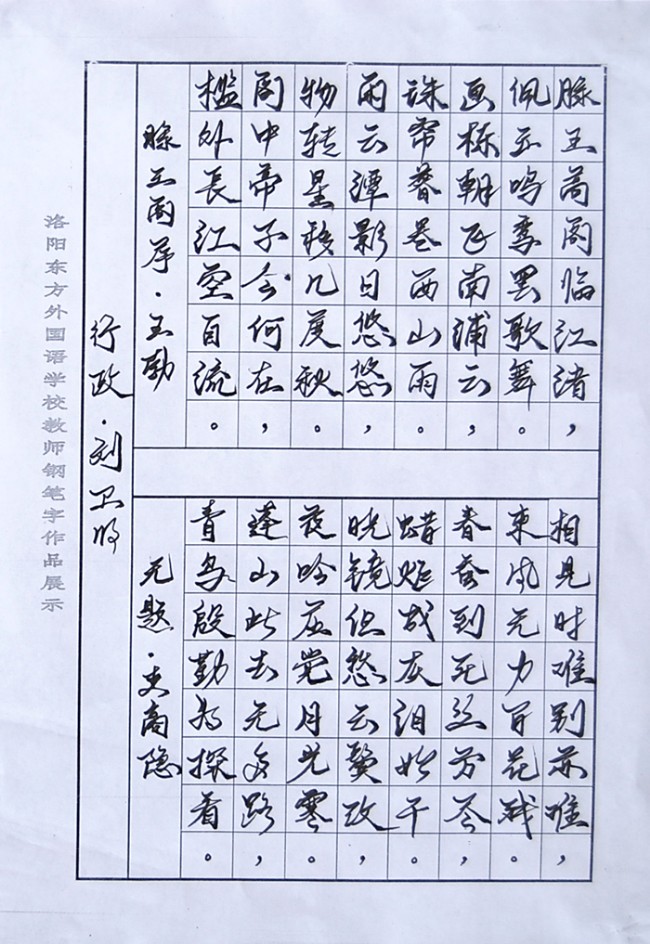 滕王高阁临江渚，
佩玉鸣鸾罢歌舞。
画栋朝飞南浦云，
珠帘暮卷西山雨。
闲云潭影日悠悠，
物转星移几度秋。
阁中帝子今何在，
槛外長江空自流。
滕王阁序·王勃
相见时难别亦难，
东风无力百花残。
春蚕到死丝方尽，
蜡炬成灰泪始干。
晓镜但愁云鬓改，
夜吟应觉月光寒。
蓬山此去无多路，
青鸟殷勤为探看。
无题·李商隐
行政·刘卫
洛阳东方外国语学校教师钢笔字作品展示